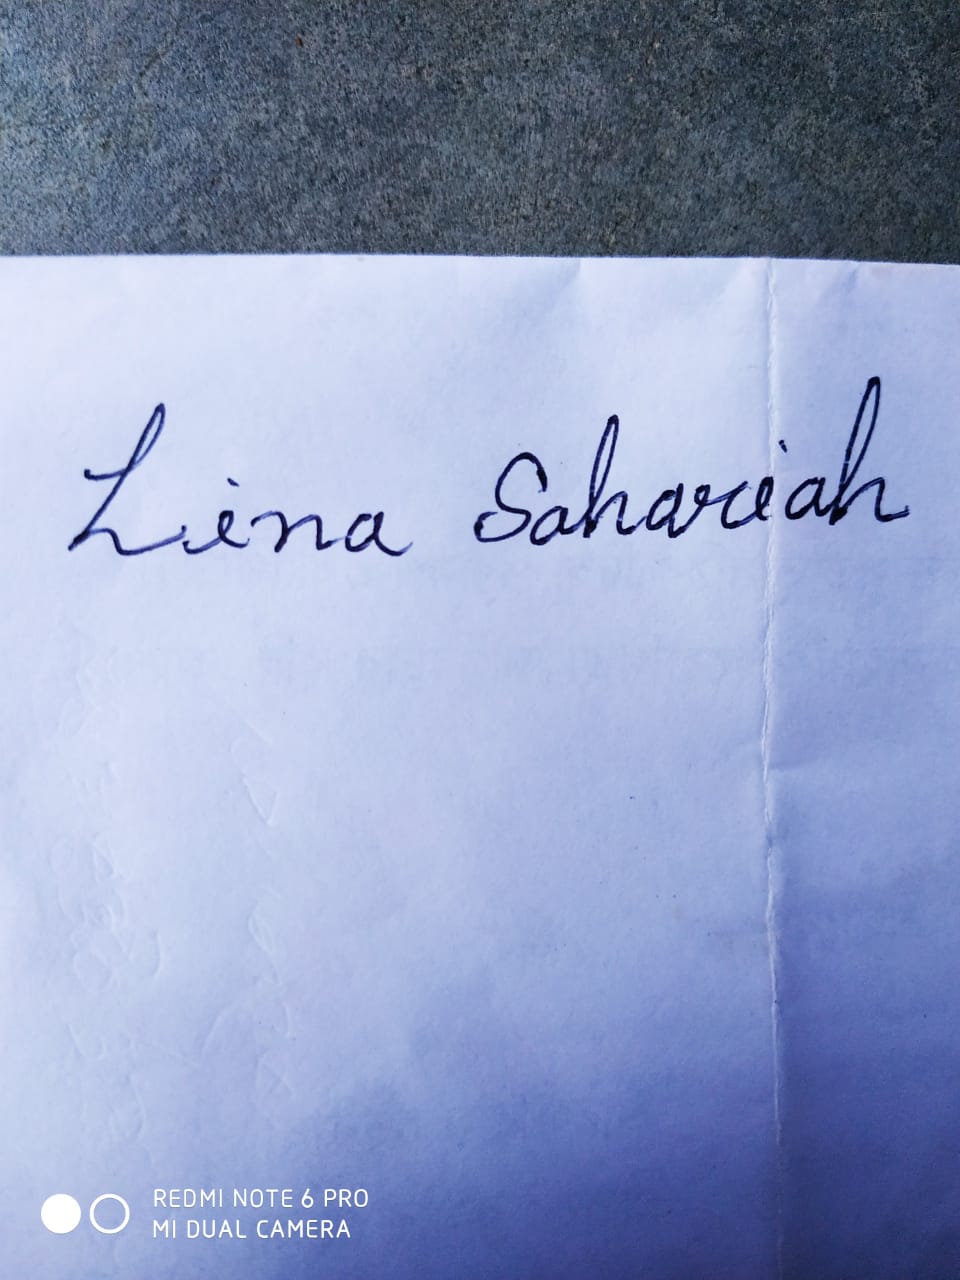 Lina Sahariah
REDMI NOTE 6 PRO
MI DUAL CAMERA